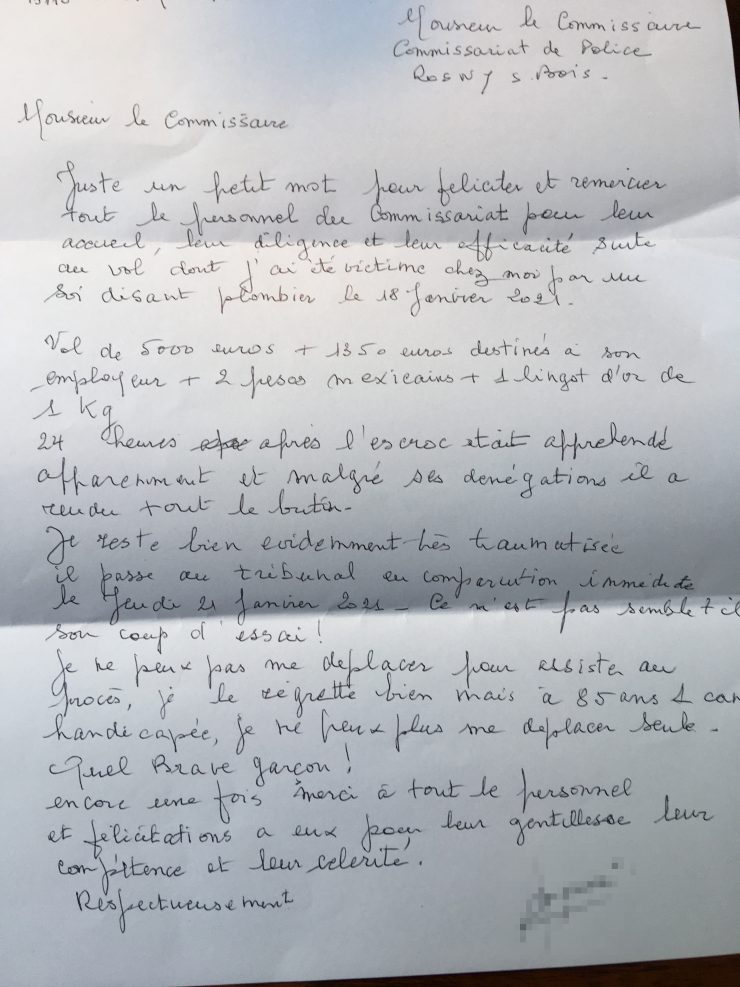 Monsieur le Commissaire
Commissariat de Police
Rosny s. Bois.
Monsieur le Commissaire
Juste un petit mot pour feliciter et remercier
tout le personnel du Commissariat pour leur
accueil, leur diligence et leur efficacité suite
au vol dont j'ai été victime chez moi par un
soi disant plombier le 18 Janvier 2021.
Vol de 5000 euros + 1350 euros destinés à son
employeur + 2 pesos mexicains + 1 lingot d'or de
1 Kg
24 heures après l'escroc etait apprehendé
apparemment et malgré ses denégations il a
rendu tout le butin.
Je reste bien evidemment très traumatisée
il passe au tribunal en comparution immédiate
le Jeudi 21 Janvier 2021 - Ce n'est pas semble t il
son coup d'essai!
Je ne peux pas me deplacer pour assister au
procès, je le régrette bien mais à 85 ans 1 can
handicapée, je ne peux plus me deplacer seule.
Quel Brave garçon!
encore une fois merci à tout le personnel
et félicitations a eux pour leur gentillesse leur
compétence et leur celerité.
Respectueusement